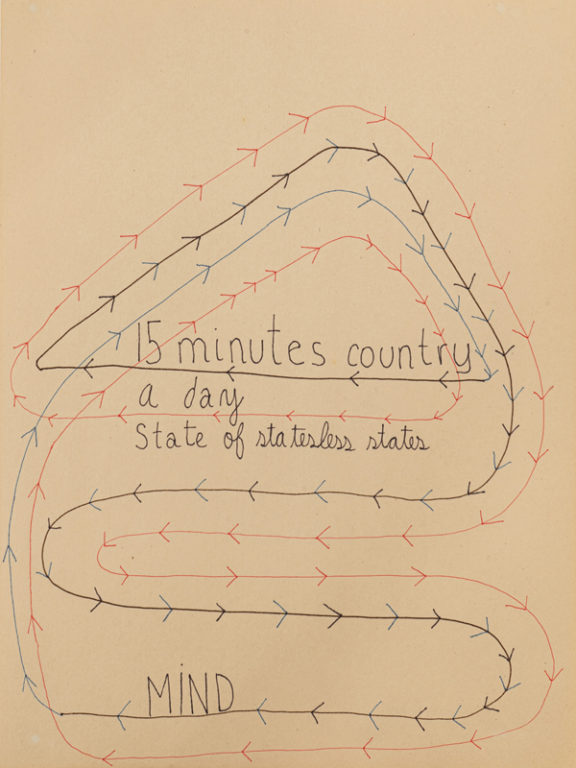 15 minutes country
a day
State of statesless states
MIND